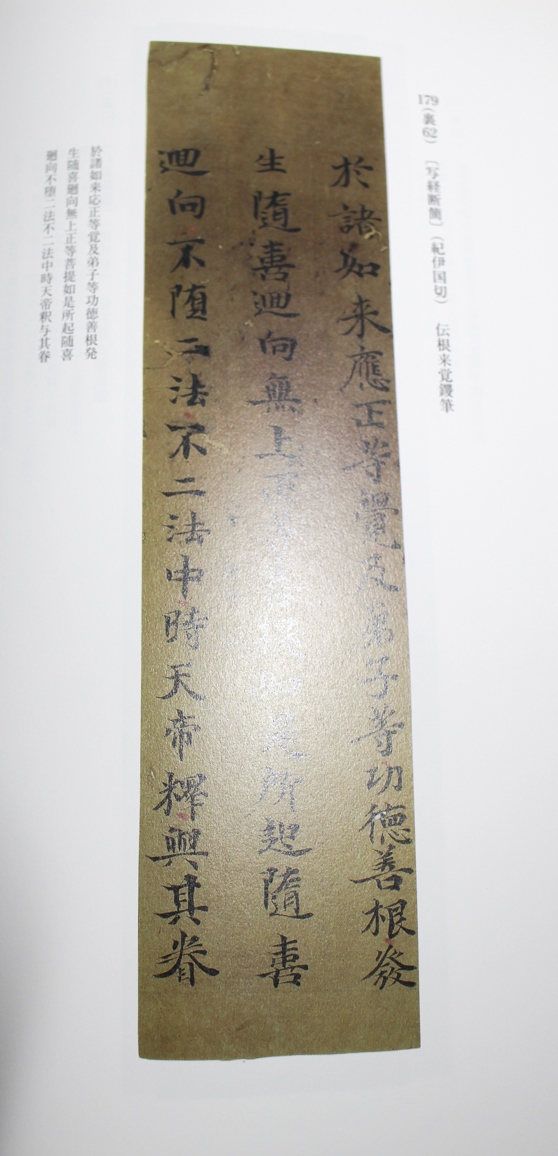 179(裏62)　〔写経断簡〕(紀伊国切)　伝根来覚鑁筆
於諸如来應正等覺及弟子等功徳善根發
生隨喜迴向無上正等菩提如是所起隨喜
迴向不堕二法不二法中時天帝釋與其眷
於諸如来応正等覚及弟子等功徳善根発
生随喜廻向無上正等菩提如是所起随喜
廻向不堕二法不二法中時天帝釈与其眷